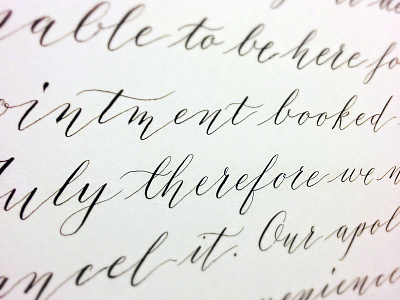 nable to be here fo
ointment booked
July therefore we n
ancel it. Our apol
venience